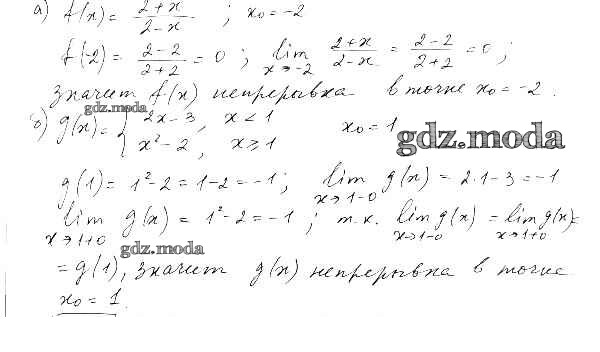 а) f(x) = (2+x)/(2-x) ; x₀ = -2
f(-2) = (2-2)/(2+2) = 0 ; lim x→-2 (2+x)/(2-x) = (2-2)/(2+2) = 0 ;
значит f(x) непрерывна в точке x₀ = -2.
gdz.moda
б) g(x) = { 2x-3, x < 1
x² - 2, x ⩾ 1
x₀ = 1
gdz.moda
g(1) = 1² - 2 = 1 - 2 = -1 ; lim x→1-0 g(x) = 2·1 - 3 = -1
lim x→1+0 g(x) = 1² - 2 = -1 ; т.к. lim x→1-0 g(x) = lim x→1+0 g(x) =
gdz.moda
= g(1), значит g(x) непрерывна в точке
x₀ = 1.